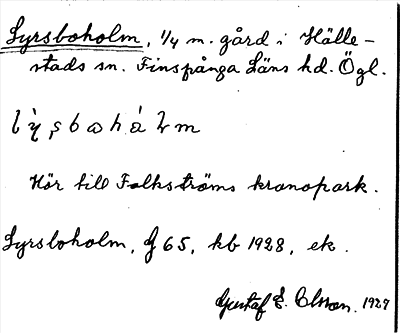 Syrsboholm, 1/4 m. gård i Hälle-
stads sn. Finspånga Läns hd. Ögl.
Hör till Folkströms kronopark.
Syrsboholm, G 65, kb 1928, ek.
Gustaf E. Olsson. 1927